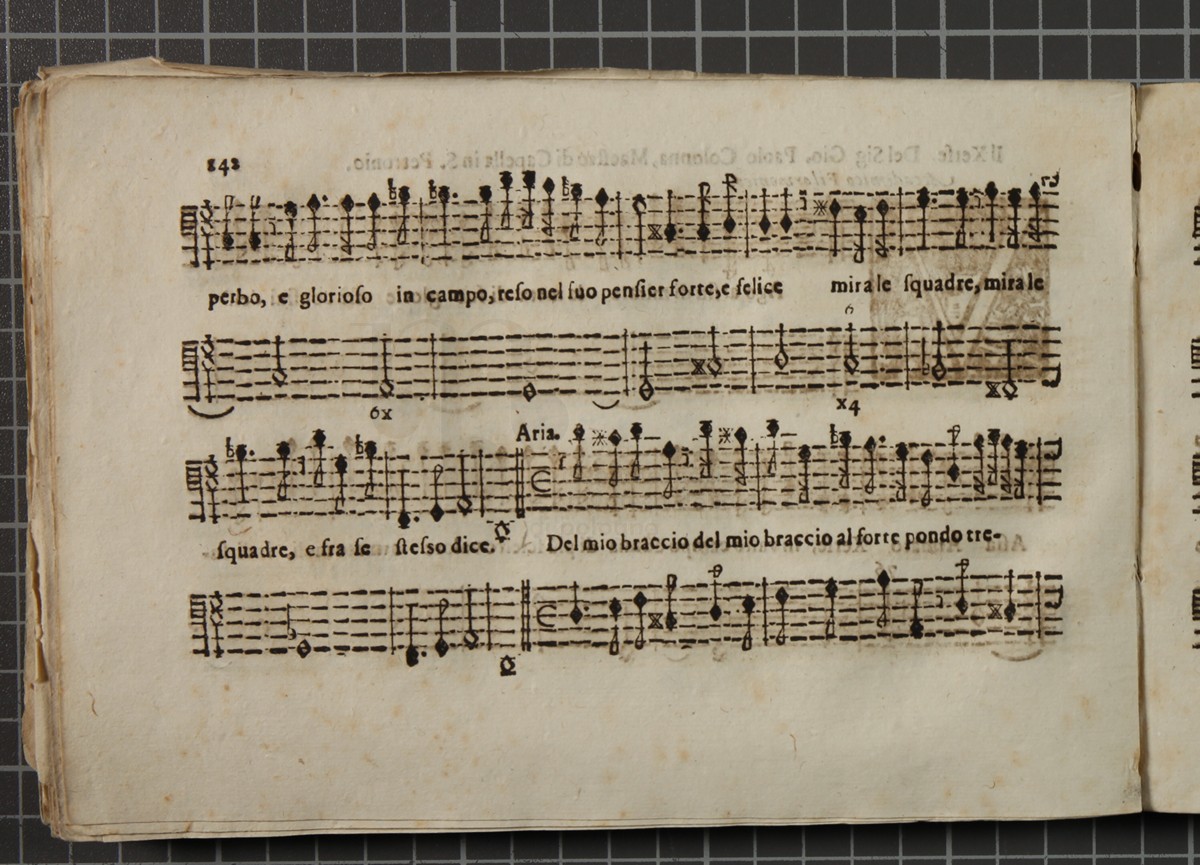 242
perbo, e glorioſo in campo, reſo nel ſuo penſier forte, e felice mira le ſquadre, mira le
6
6x
x4
Aria.
ſquadre, e fra ſe ſteſso dice. Del mio braccio del mio braccio al forte pondo tre-